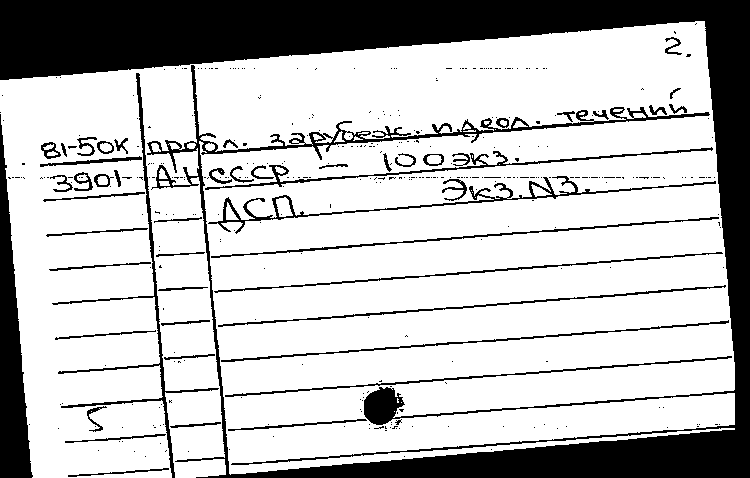 2.
81-50к пробл. зарубеж. идеол. течений
3901 АН СССР — 100 экз.
ДСП. Экз. N3.
5